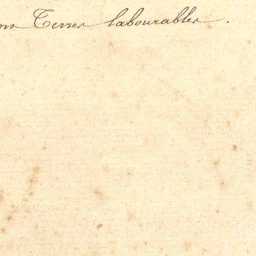 Terres labourables.